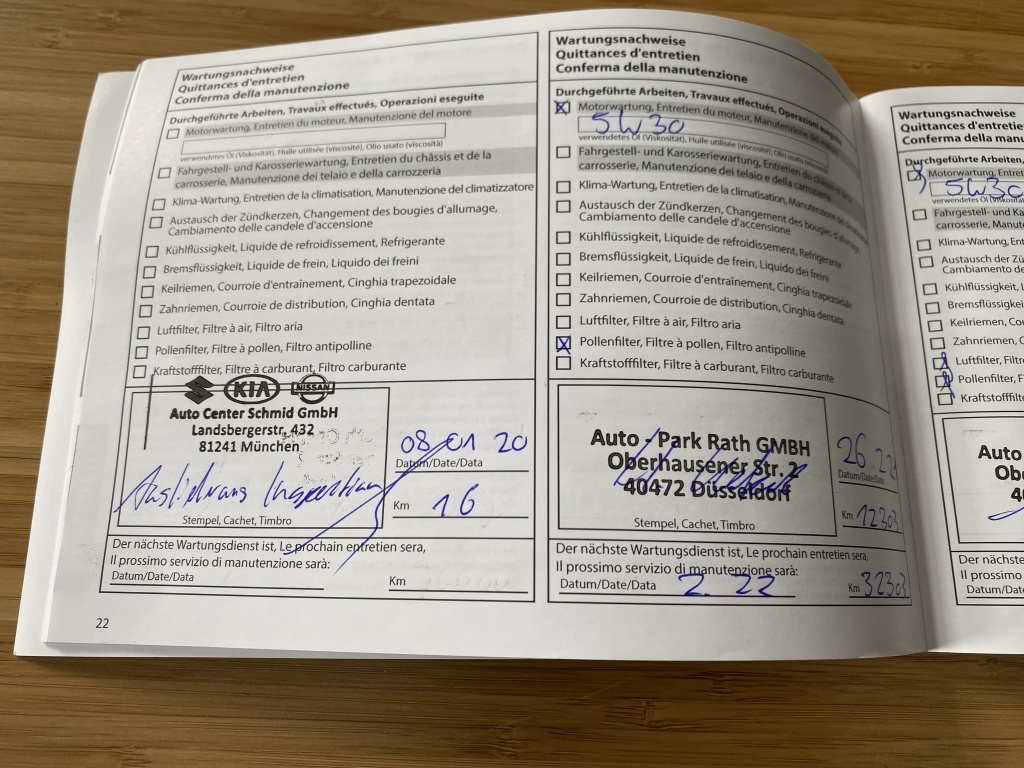 Wartungsnachweise
Quittances d'entretien
Conferma della manutenzione
Durchgeführte Arbeiten, Travaux effectués, Operazioni eseguite
Motorwartung, Entretien du moteur, Manutenzione del motore
verwendetes Öl (Viskosität), Huile utilisée (viscosité), Olio usato (viscosità)
Fahrgestell- und Karosseriewartung, Entretien du châssis et de la
carrosserie, Manutenzione dei telaio e della carrozzeria
Klima-Wartung, Entretien de la climatisation, Manutenzione del climatizzatore
Austausch der Zündkerzen, Changement des bougies d'allumage,
Cambiamento delle candele d'accensione
Kühlflüssigkeit, Liquide de refroidissement, Refrigerante
Bremsflüssigkeit, Liquide de frein, Liquido dei freini
Keilriemen, Courroie d'entraînement, Cinghia trapezoidale
Zahnriemen, Courroie de distribution, Cinghia dentata
Luftfilter, Filtre à air, Filtro aria
Pollenfilter, Filtre à pollen, Filtro antipolline
Kraftstofffilter, Filtre à carburant, Filtro carburante
KIA NISSAN
Auto Center Schmid GmbH
Landsbergerstr. 432
81241 München
08 01 20
Datum/Date/Data
Inspektion
Km 16
Stempel, Cachet, Timbro
Der nächste Wartungsdienst ist, Le prochain entretien sera,
Il prossimo servizio di manutenzione sarà:
Datum/Date/Data
Km
22
Wartungsnachweise
Quittances d'entretien
Conferma della manutenzione
Durchgeführte Arbeiten, Travaux effectués, Operazioni eseguite
Motorwartung, Entretien du moteur, Manutenzione del motore
5W30
verwendetes Öl (Viskosität), Huile utilisée (viscosité), Olio usato (viscosità)
Fahrgestell- und Karosseriewartung, Entretien du châssis et de la
carrosserie, Manutenzione dei telaio e della carrozzeria
Klima-Wartung, Entretien de la climatisation, Manutenzione del
Austausch der Zündkerzen, Changement des bougies d'allumage,
Cambiamento delle candele d'accensione
Kühlflüssigkeit, Liquide de refroidissement, Refrigerante
Bremsflüssigkeit, Liquide de frein, Liquido dei freini
Keilriemen, Courroie d'entraînement, Cinghia trapezoidale
Zahnriemen, Courroie de distribution, Cinghia dentata
Luftfilter, Filtre à air, Filtro aria
Pollenfilter, Filtre à pollen, Filtro antipolline
Kraftstofffilter, Filtre à carburant, Filtro carburante
Auto - Park Rath GMBH
Oberhausener Str. 2
40472 Düsseldorf
26.2.21
Datum/Date/Data
Km 12303
Stempel, Cachet, Timbro
Der nächste Wartungsdienst ist, Le prochain entretien sera,
Il prossimo servizio di manutenzione sarà:
Datum/Date/Data 2. 22
Km 32303
Wartungsnachweise
Quittances d'entretie
Conferma della manu
Durchgeführte Arbeiten,
Motorwartung, Entret
5W30
verwendetes Öl (Viskosität
Fahrgestell- und Ka
carrosserie, Manute
Klima-Wartung, Ent
Austausch der Zü
Cambiamento de
Kühlflüssigkeit,
Bremsflüssigkei
Keilriemen, Co
Zahnriemen, C
Luftfilter, Filtr
Pollenfilter, F
Kraftstofffil
Auto
Ob
4
Stem
Der nächste
Il prossimo
Datum/D